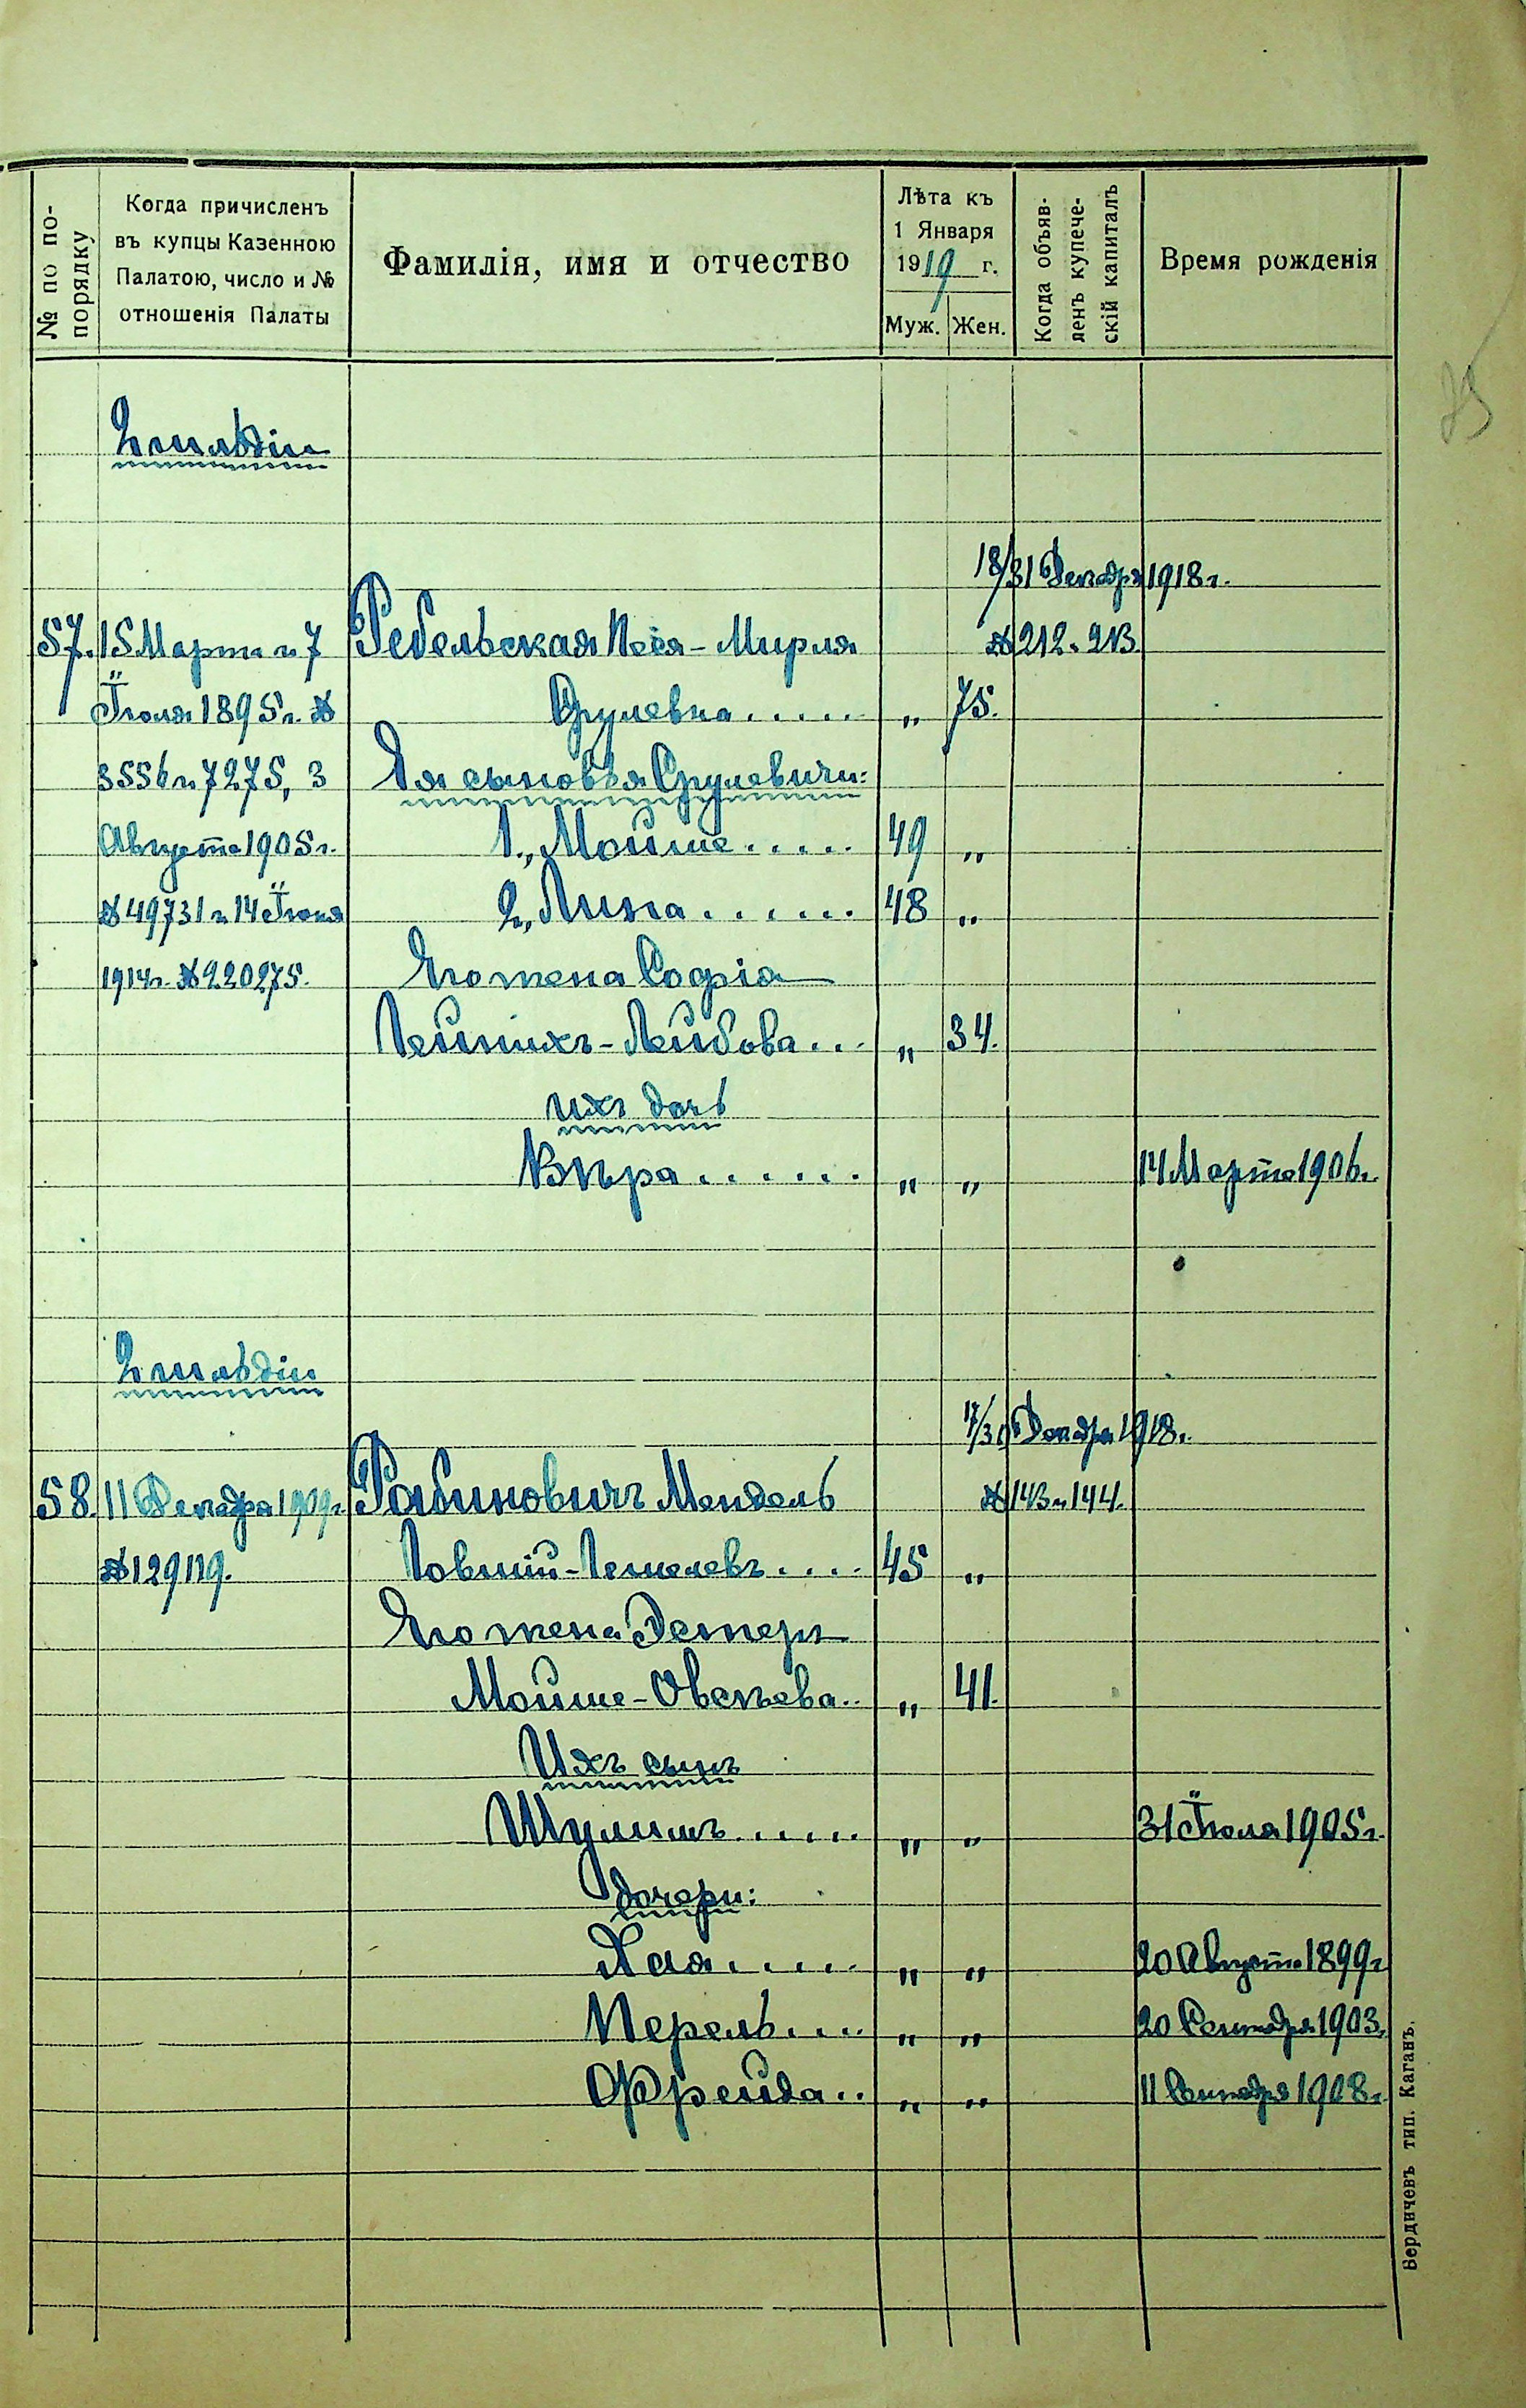 № по по-
порядку
Когда причисленъ
въ купцы Казенною
Палатою, число и №
отношенія Палаты
Фамилія, имя и отчество
Лѣта къ
1 Января
1919 г.
Муж. Жен.
Когда объяв-
ленъ купече-
скій капиталъ
Время рожденія
75
2 гильдіи
18/31 Декабря 1918 г.
57. 15 Марта и 7 Ребельская Песя-Мирля № 212 и 213.
Іюля 1895 г. № Срулевна..... " 75.
3556 и 7275, 3 Ея сыновья Срулевичи:
Августа 1905 г. 1., Мойше..... 49 "
№ 49731 и 14 Іюня 2, Липа...... 48 "
1914 г. № 220275. Его жена Софія
Лейбова... " 34.
ихъ дочь
Вѣра...... " " 14 Марта 1906 г.
2 гильдіи
17/30 Декабря 1918 г.
58. 11 Декабря 1909 г. Рабиновичъ Мендель № 143 и 144.
№ 129119. .... 45 "
Его жена Эстеръ
Мойше-Овсѣева.. " 41.
Ихъ сынъ
Шулимъ..... " " 31 Іюля 1905 г.
дочери:
Хая..... " " 20 Августа 1899 г.
Перель.... " " 20 Сентября 1903.
Фрейда.. " " 11 Сентября 1908 г.
Бердичевъ тип. Каганъ.